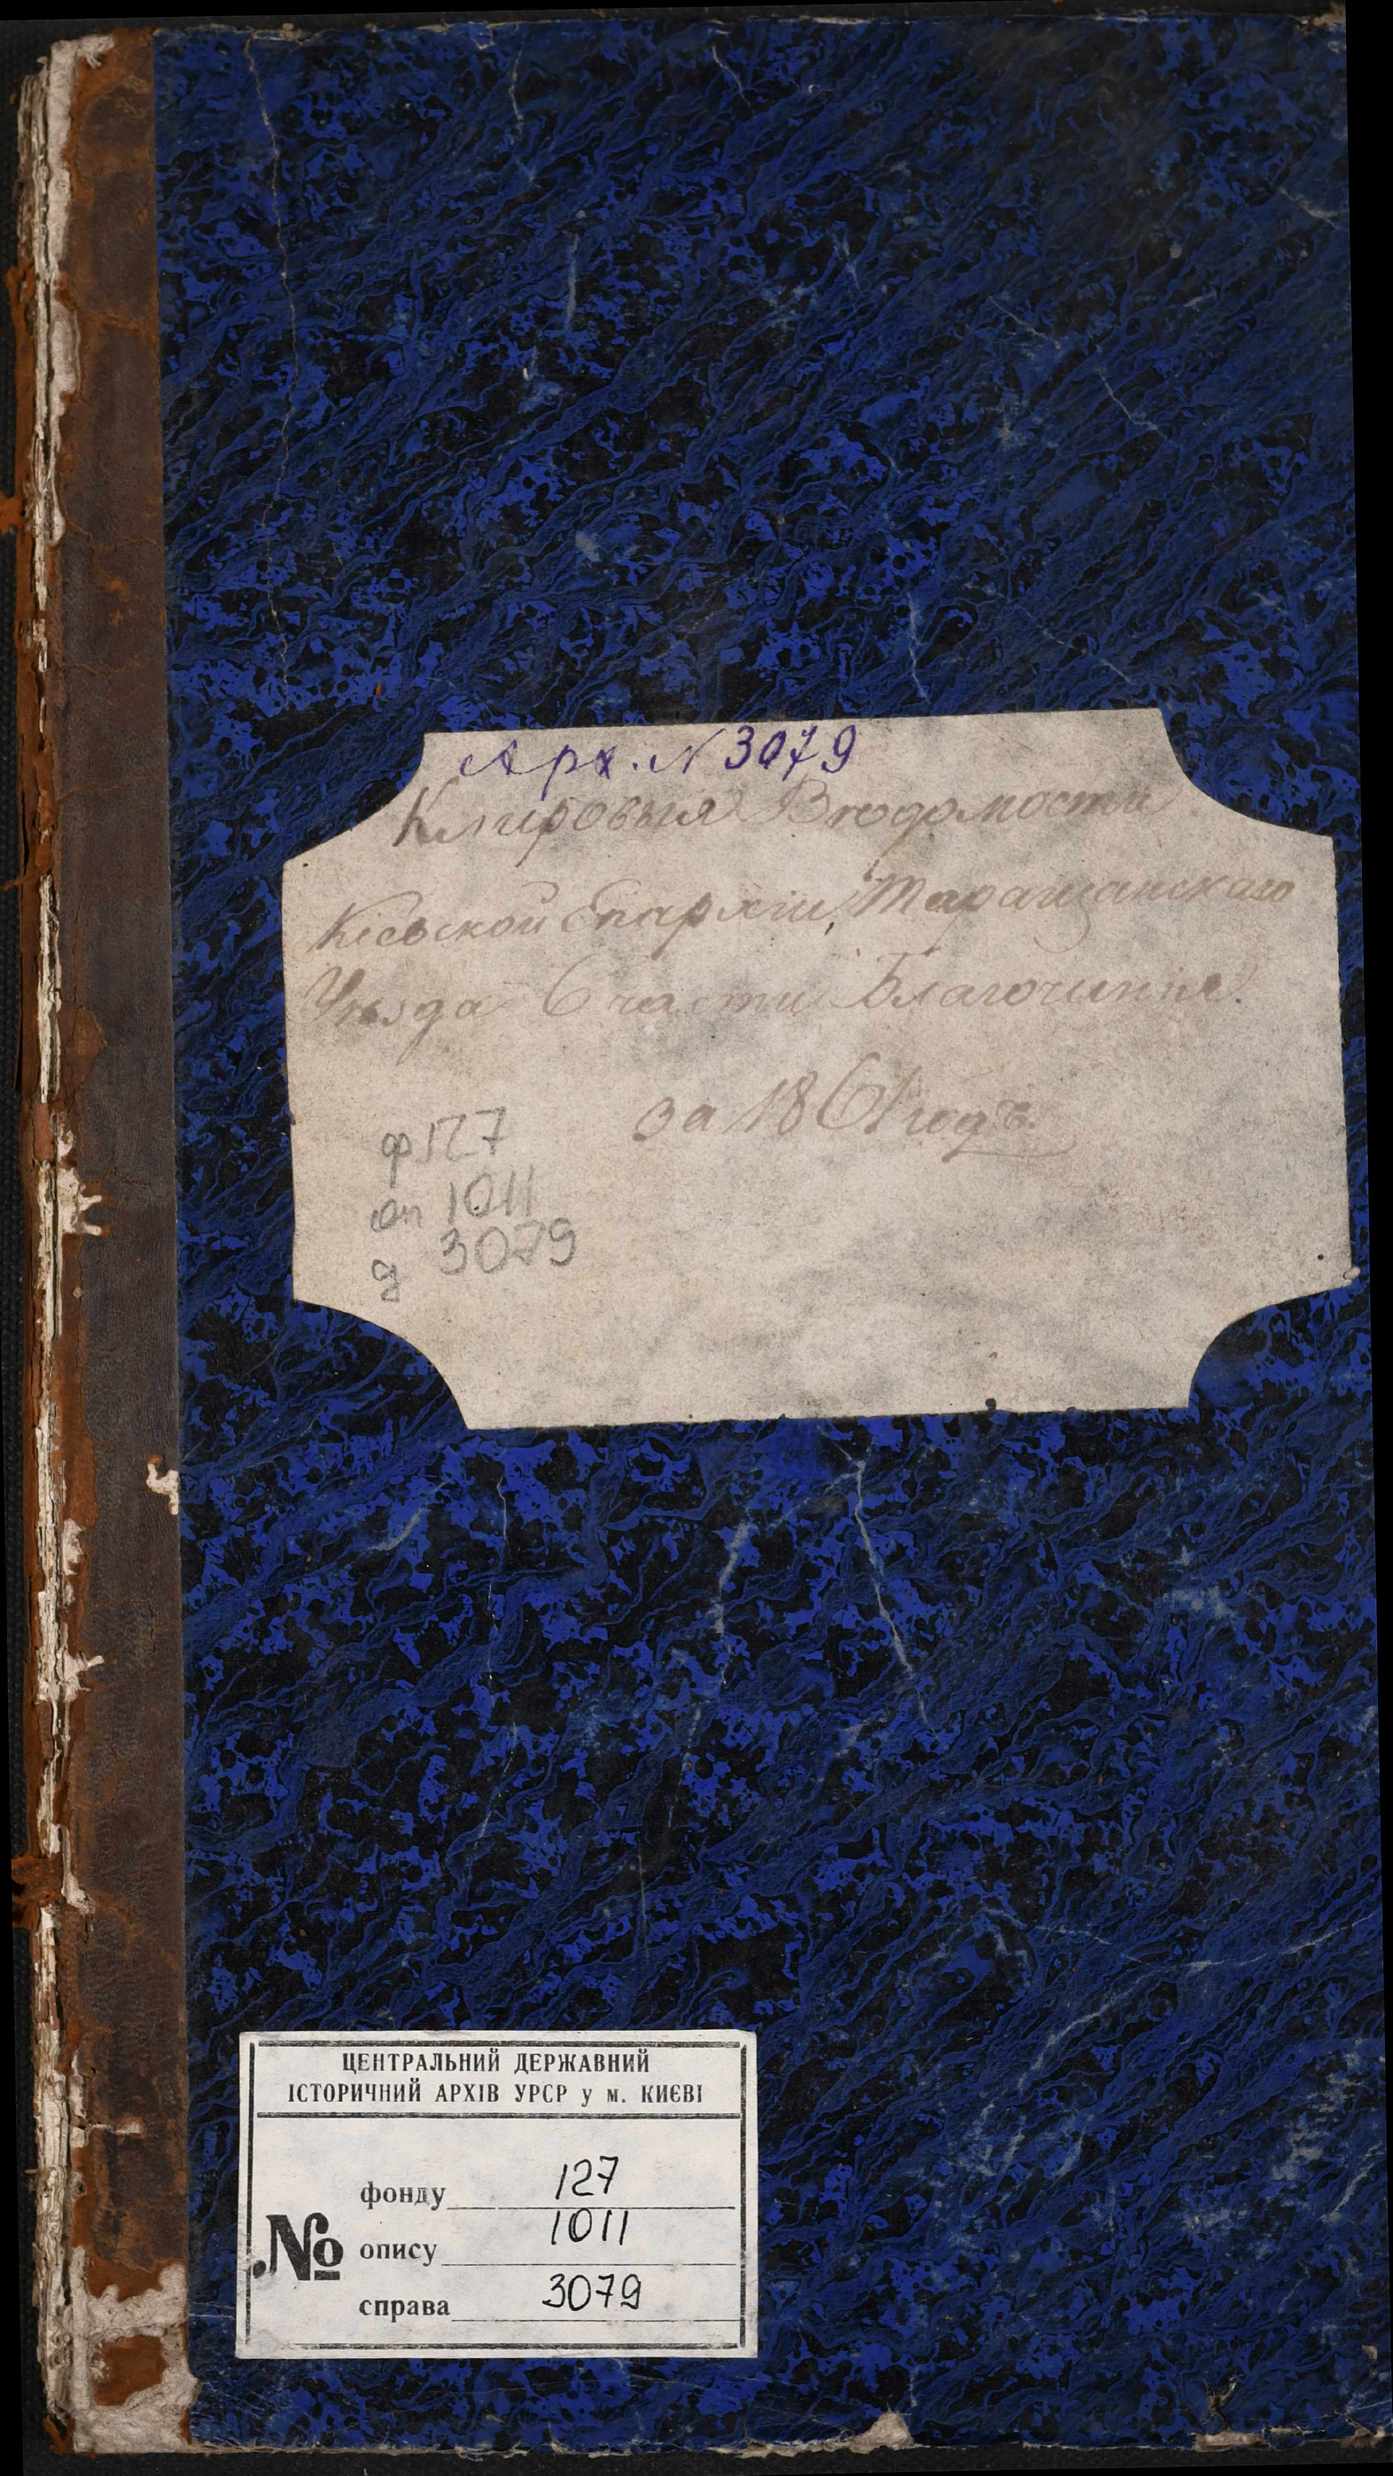 Арх. N 3079
Клировыя Вѣдомости
Кіевской Епархіи, Таращанскаго
Уѣзда 6 части Благочинія.
за 1861 годъ.
ф 127
оп 1011
д 3079
ЦЕНТРАЛЬНИЙ ДЕРЖАВНИЙ
ІСТОРИЧНИЙ АРХІВ УРСР у м. КИЄВІ
№
фонду 127
опису 1011
справа 3079